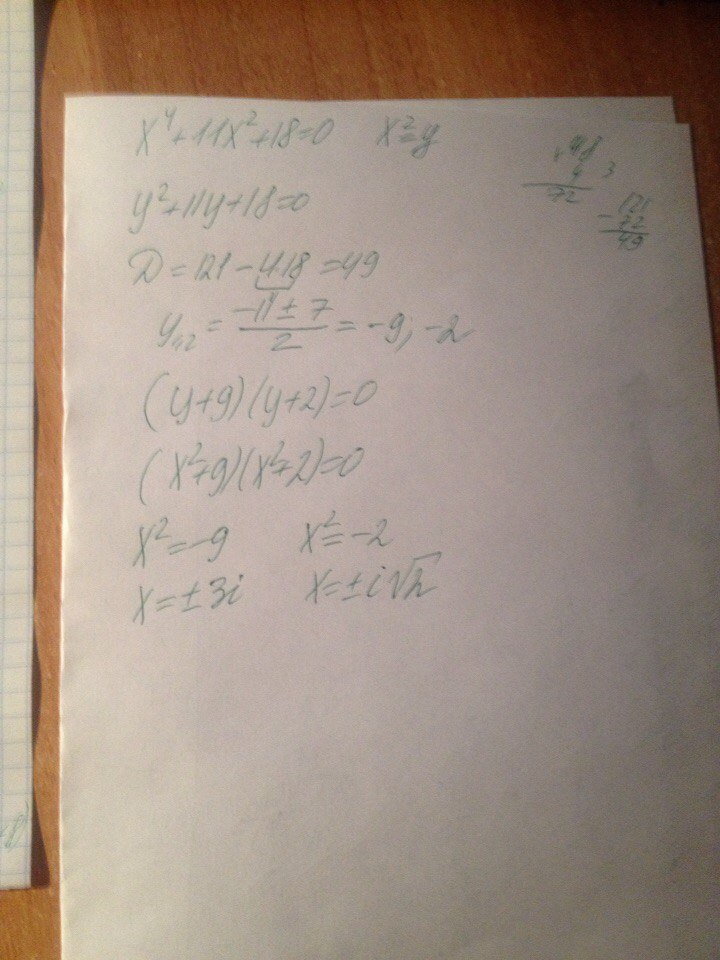 x⁴+11x²+18=0 x²=y
y²+11y+18=0
D=121-4·18=49
y₁,₂=(-11±7)/2=-9;-2
(y+9)(y+2)=0
(x²+9)(x²+2)=0
x²=-9 x²=-2
x=±3i x=±i√2
18
4 3
72
121
-72
49